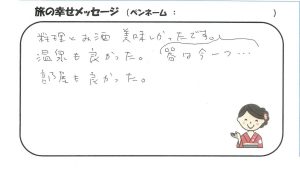 旅の幸せメッセージ （ペンネーム： ）
料理とお酒 美味しかったです。
温泉も良かった。 器は今一つ…
部屋も良かった。